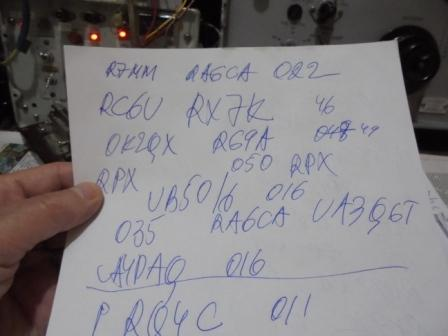 R7MM RA6CA 022
RC6U RX7K 46
OK2QX R69A 49
050 RPX
RPX UB50/6 016
035 RA6CA UA3Q6T
UA4PAQ 016
P RQ4C 011